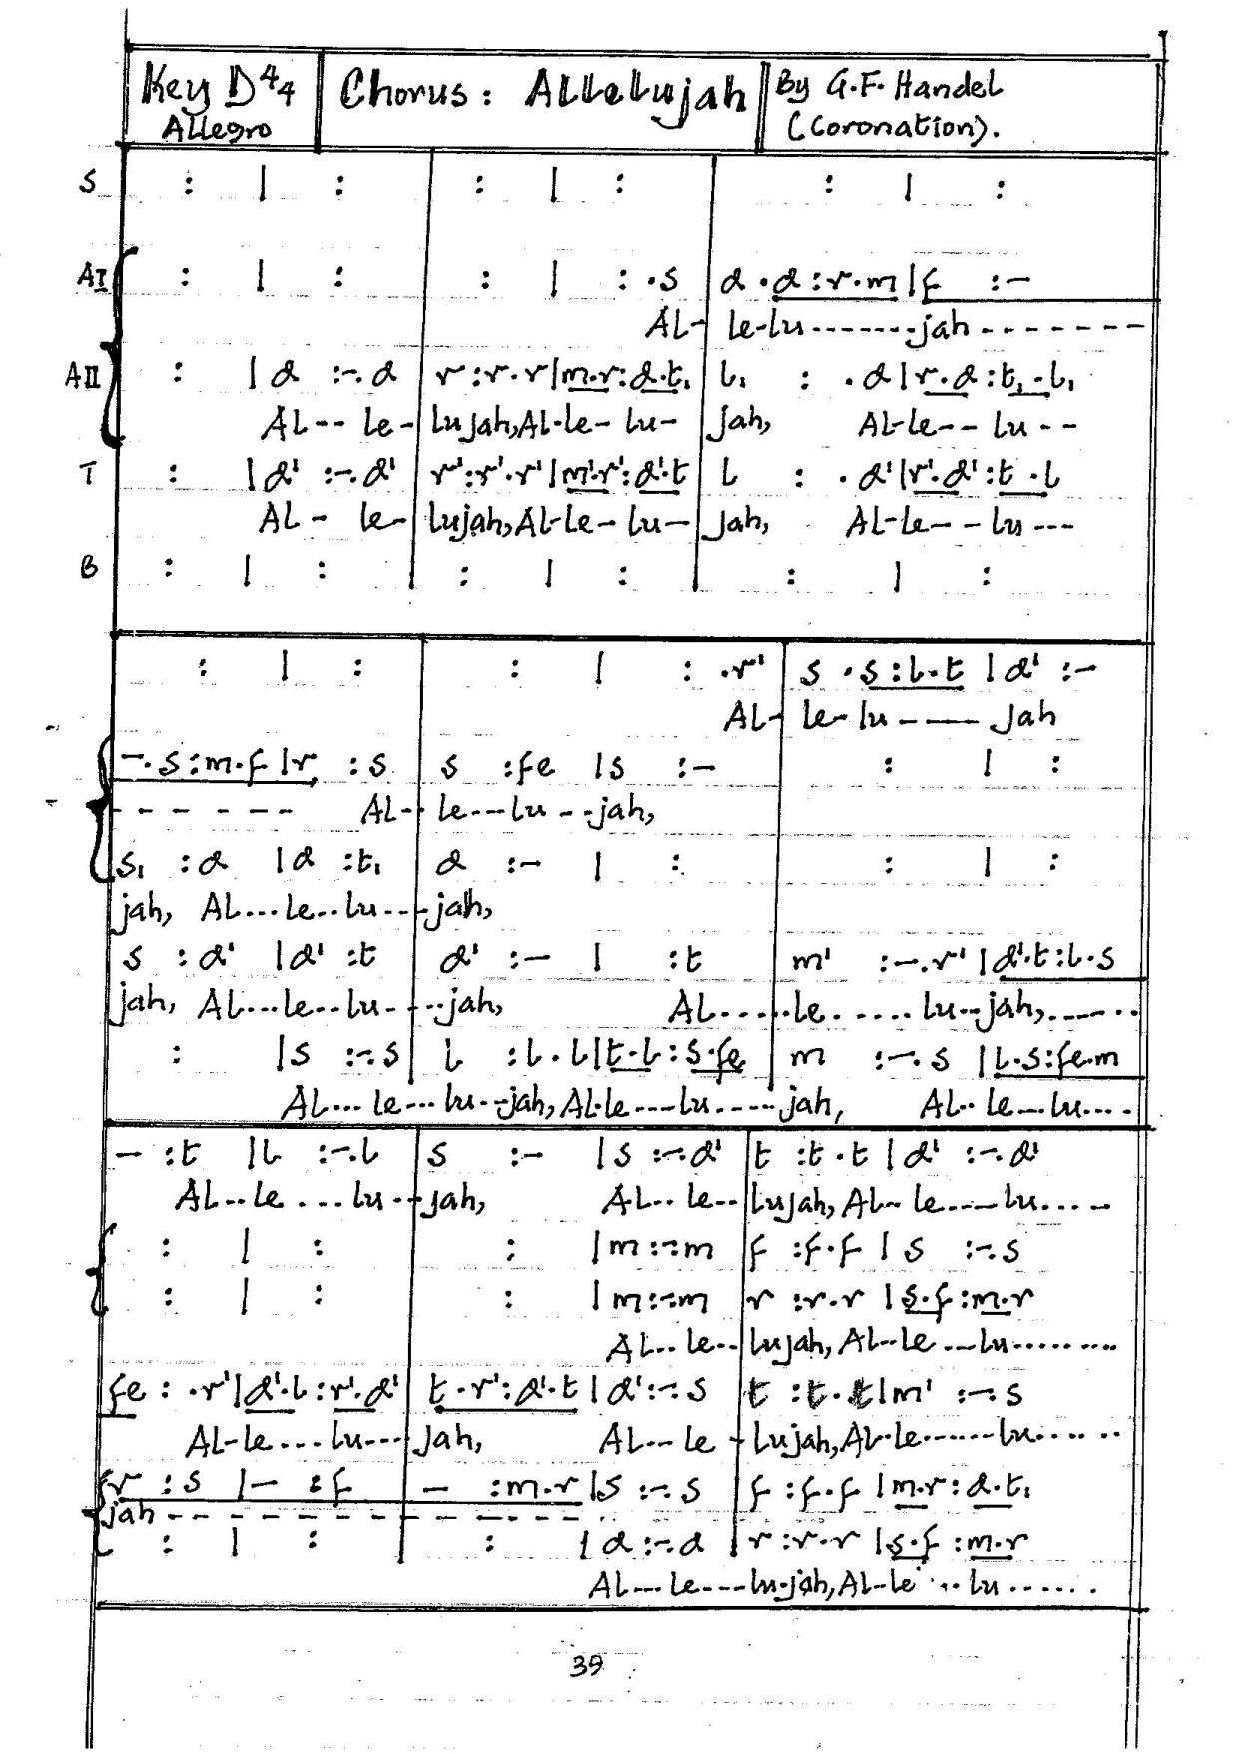 Key D 4/4 Allegro | Chorus: Allelujah | By G.F. Handel (Coronation).
S : | : | : | : | : | :
AI : | : | : | : .s | d .d :r.m | f :-
Al- le-lu-------jah--------
AII : | d :-.d | r :r.r | m.r :d.t₁ | l₁ : .d | r.d :t₁.l₁
Al-- le- lujah, Al-le- lu- jah, Al-le-- lu--
T : | d' :-.d' | r' :r'.r' | m'.r' :d'.t | l : .d' | r'.d' :t.l
Al- le- lujah, Al-le- lu- jah, Al-le-- lu---
B : | : | : | : | : | :
: | : | : | : .r' | s .s :l.t | d' :-
Al- le-lu---- jah
-.s :m.f | r :s | s :fe | s :- | : | :
------ Al-- le---lu--jah,
s₁ :d | d :t₁ | d :- | : | : | :
jah, Al...le..lu---jah,
s :d' | d' :t | d' :- | :t | m' :-.r' | d'.t :l.s
jah, Al...le..lu----jah, Al.....le.....lu--jah,......
: | s :-.s | l :l.l | t.l :s.fe | m :-.s | l.s :fe.m
Al... le...lu--jah, Al-le---lu----jah, Al.. le--lu....
- :t | l :-.l | s :- | s :-.d' | t :t.t | d' :-.d'
Al..le ...lu--jah, Al.. le-- lujah, Al-- le----lu....-
: | : | : | m :-.m | f :f.f | s :-.s
: | : | : | m :-.m | r :r.r | s.f :m.r
Al.. le-- lujah, Al--le ---lu.........
fe : .r' | d'.l :r'.d' | t.r' :d'.t | d' :-.s | t :t.t | m' :-.s
Al-le...lu---jah, Al--- le - lujah, Al-le......lu......
r :s | - :f | - :m.r | s :-.s | f :f.f | m.r :d.t₁
jah ------------
: | : | : | d :-.d | r :r.r | s.f :m.r
Al---le---lu-jah, Al-le ...lu......
39